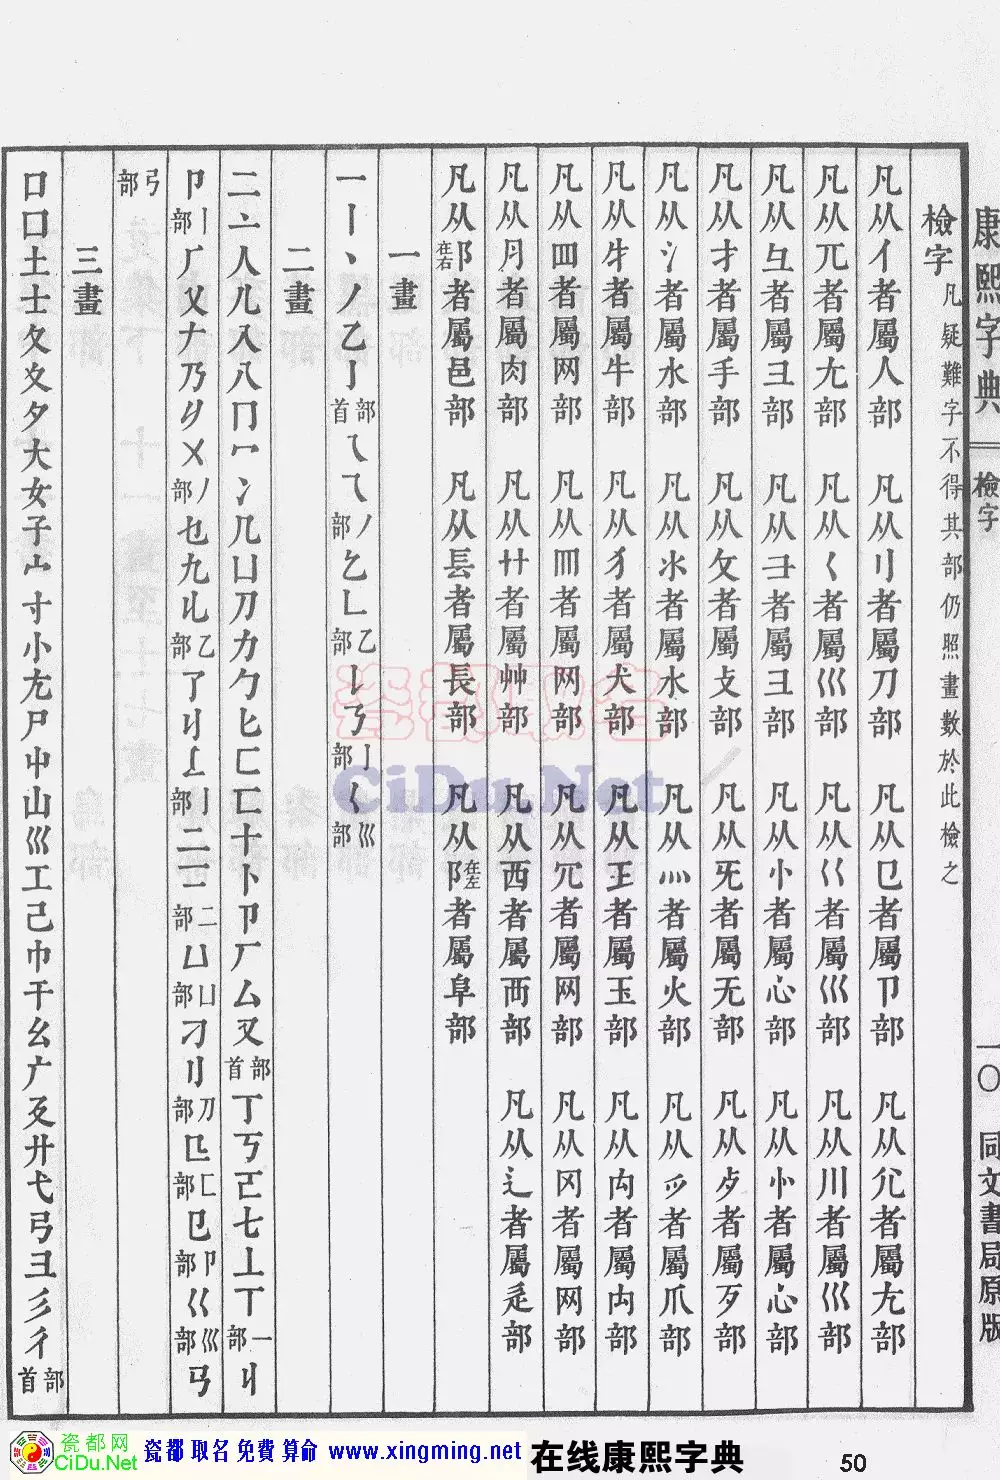 康熙字典 檢字 一〇 同文書局原版
檢字 凡疑難字不得其部仍照畫數於此檢之
凡从亻者屬人部 凡从刂者屬刀部 凡从㔾者屬卩部 凡从尣者屬尢部
凡从兀者屬尢部 凡从巜者屬巛部 凡从川者屬巛部
凡从彑者屬彐部 凡从彐者屬彐部 凡从忄者屬心部 凡从㣺者屬心部
凡从扌者屬手部 凡从攵者屬攴部 凡从旡者屬无部 凡从歺者屬歹部
凡从氵者屬水部 凡从氺者屬水部 凡从灬者屬火部 凡从爫者屬爪部
凡从牜者屬牛部 凡从犭者屬犬部 凡从王者屬玉部 凡从禸者屬禸部
凡从罒者屬网部 凡从者屬网部 凡从者屬网部 凡从冈者屬网部
凡从月者屬肉部 凡从艹者屬艸部 凡从西者屬襾部 凡从辶者屬辵部
凡从阝在右者屬邑部 凡从镸者屬長部 凡从阝在左者屬阜部
一畫
一丨丶丿乙亅部首乀乁丿部乞乚乙部亅部巛部
二畫
二亠人儿入八冂冖冫几凵刀力勹匕匚匸十卜卩厂厶又部首丁丂七丄丅一部
卩丨部乂乃乄丿部也九乙部了亅部二部凵部刁刂刀部匚部㔾卩部巜巛部
弓部
三畫
口囗土士夂夊夕大女子宀寸小尢尸屮山巛工己巾干幺广廴廾弋弓彐彡彳部首
瓷都取名
CiDu.Net
瓷都网
CiDu.Net
瓷都取名免費算命 www.xingming.net 在线康熙字典 50